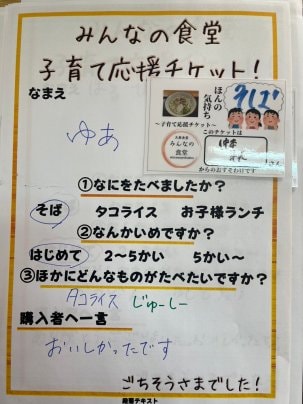 みんなの食堂
子育て応援チケット!
なまえ
ゆあ
ほんの
気持ち
~子育て応援チケット~
みんなの
食堂
このチケットは
さん
からのおすそわけです
①なにをたべましたか?
そば タコライス お子様ランチ
②なんかいめですか?
はじめて 2~5かい 5かい~
③ほかにどんなものがたべたいですか?
タコライス じゅーしー
購入者へ一言
おいしかったです
ごちそうさまでした!
段落テキスト